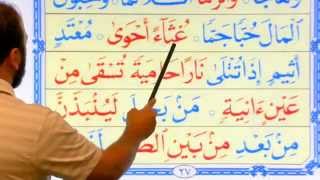 الْمَالَ حُبًّا جَمًّا * غُثَآءً أَحْوٰى * مُعْتَدٍ
أَثِيْمٍ إِذَا تُتْلٰى * نَارًا حَامِيَةً تُسْقٰى مِنْ
عَيْنٍ اٰنِيَةٍ * مَنْ بَخِلَ لَيُنْبَذَنَّ
مِنْ بَعْدِ مِنْ بَيْنِ
٢٧